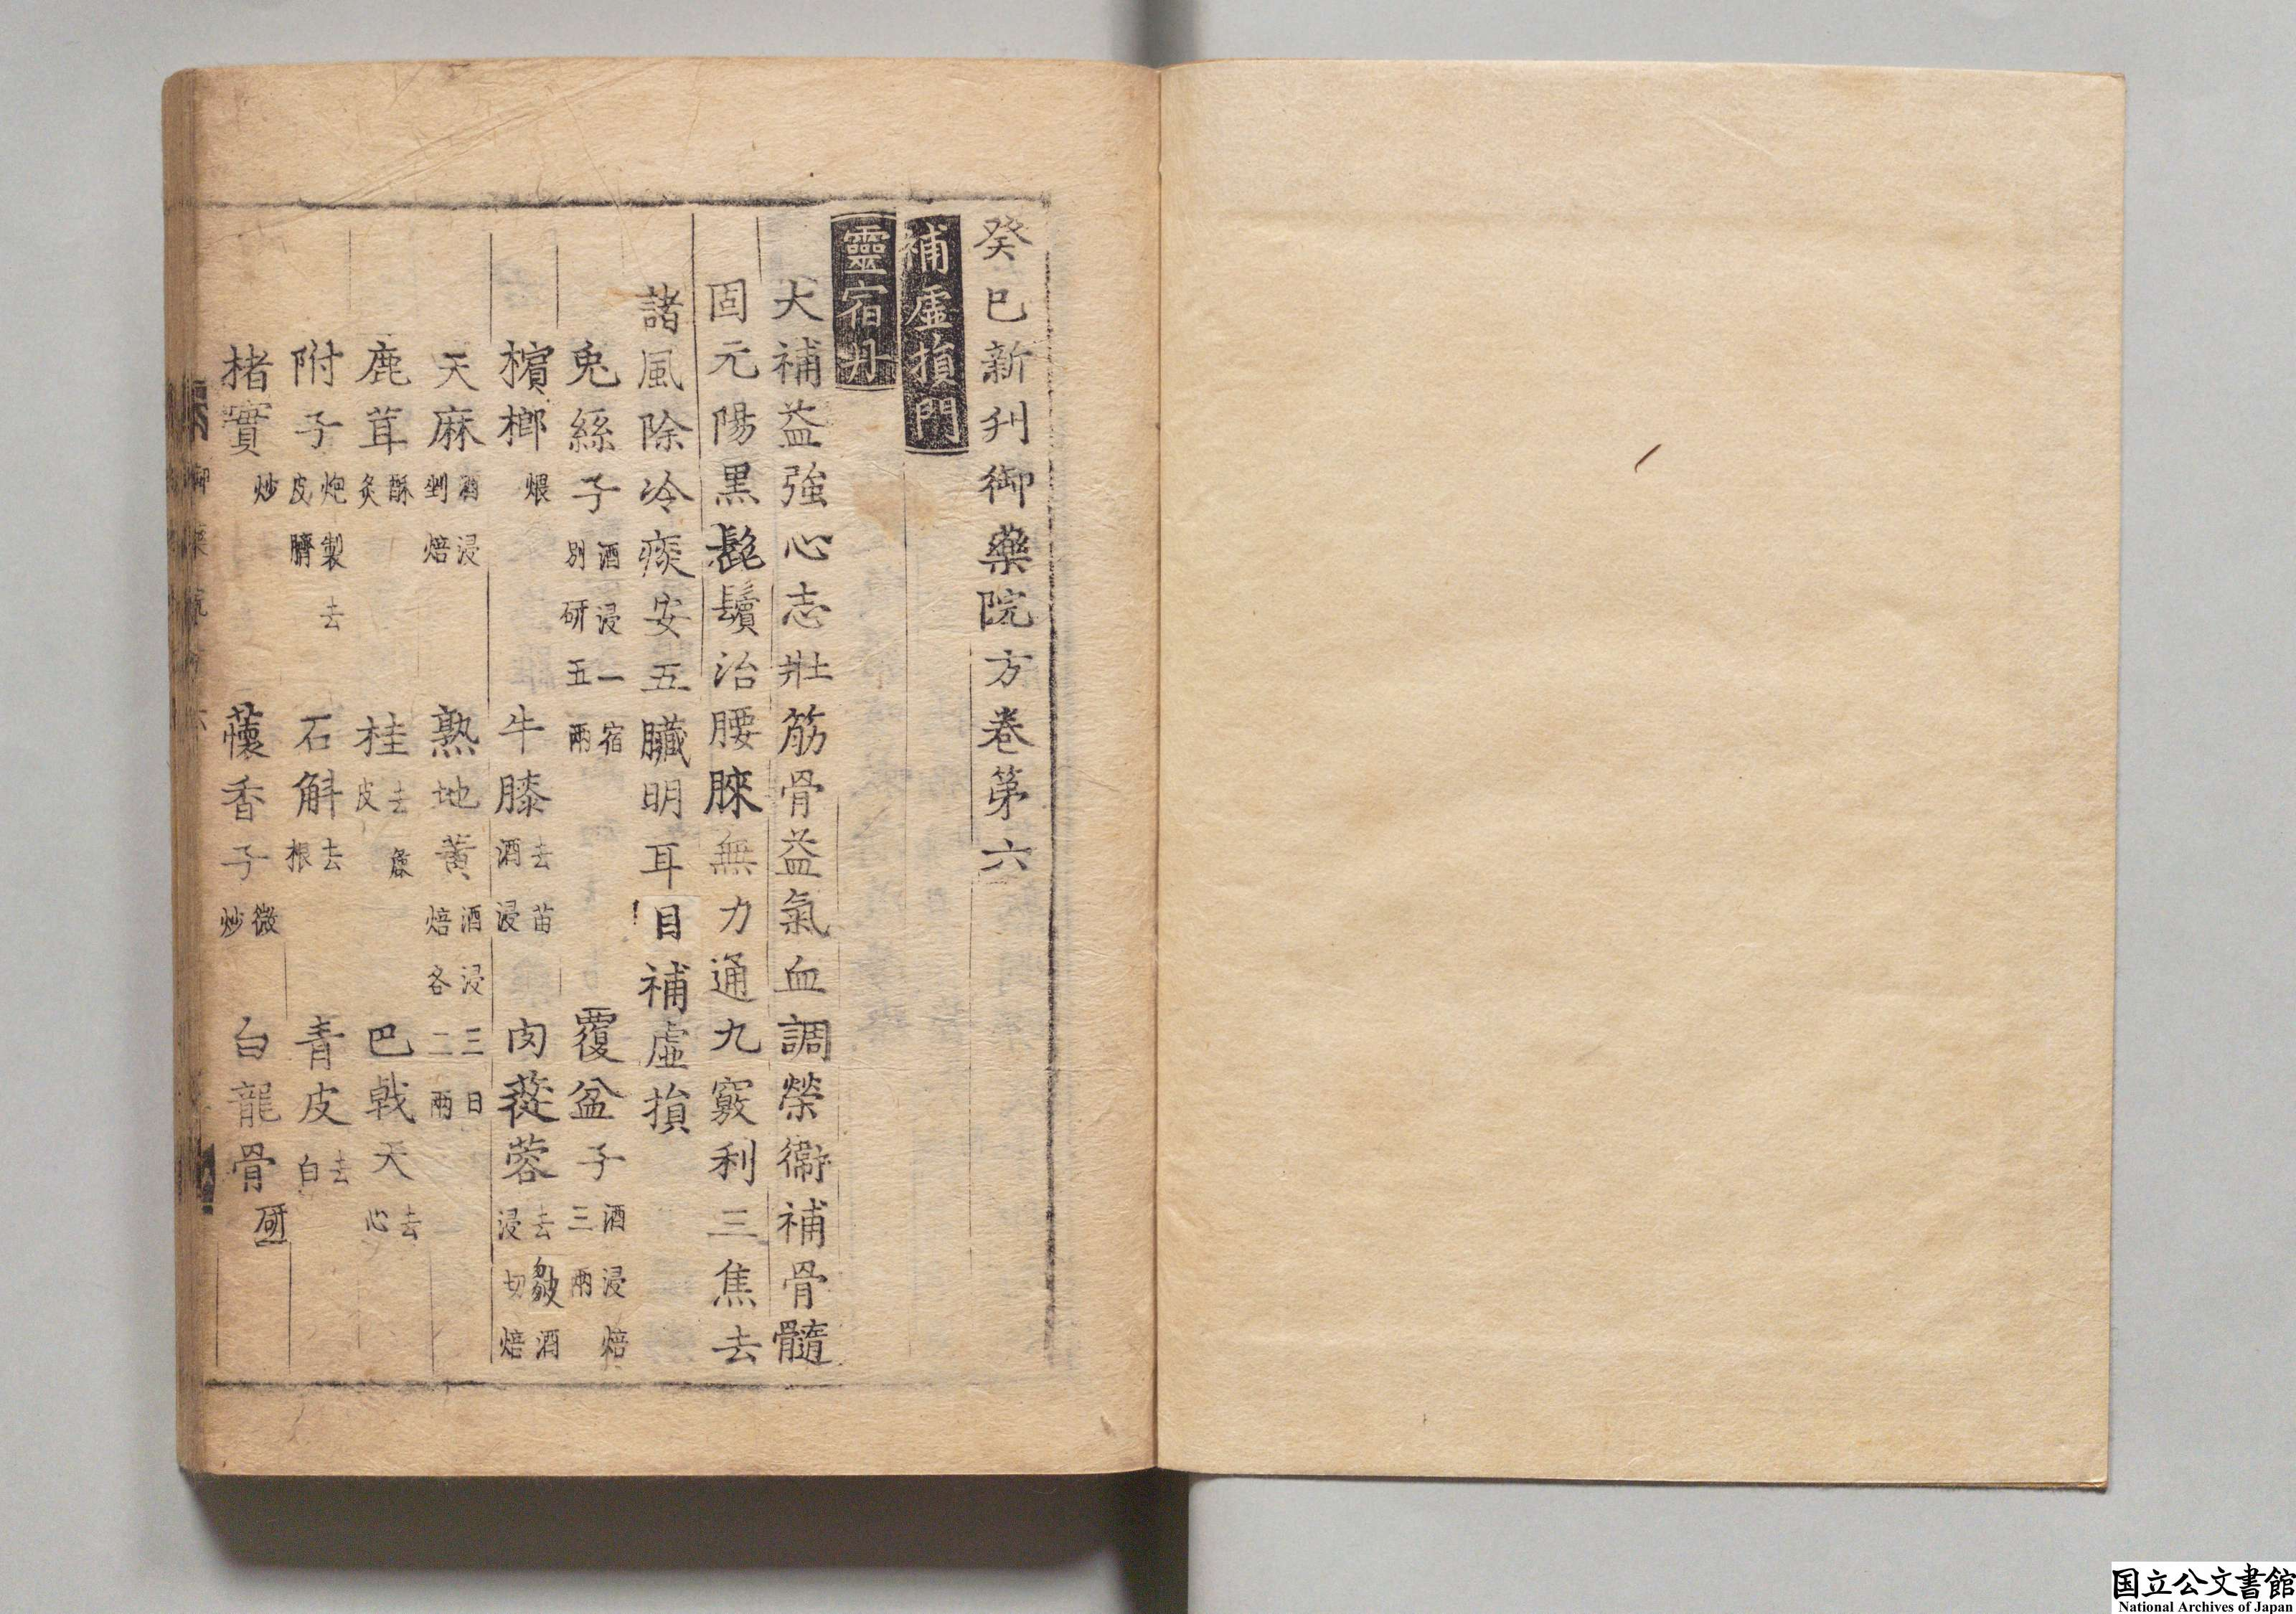 癸巳新刋御藥院方卷第六
補虛損門
靈宿丹
大補益強心志壯筋骨益氣血調榮衞補骨髓
固元陽黒髭鬚治腰膝無力通九竅利三焦去
諸風除冷痰安五臟明耳目補虛損
兎絲子酒浸一宿別研五兩 覆盆子酒浸焙三兩
檳榔煨 牛膝去苗酒浸 肉蓯蓉去皺酒浸切焙
天麻酒浸剉焙 熟地黃酒浸三日焙各二兩
鹿茸酥炙 桂去麁皮 巴戟天去心
附子炮製去皮臍 石斛去根 青皮去白
楮實炒 蘹香子微炒 白龍骨研
国立公文書館
National Archives of Japan